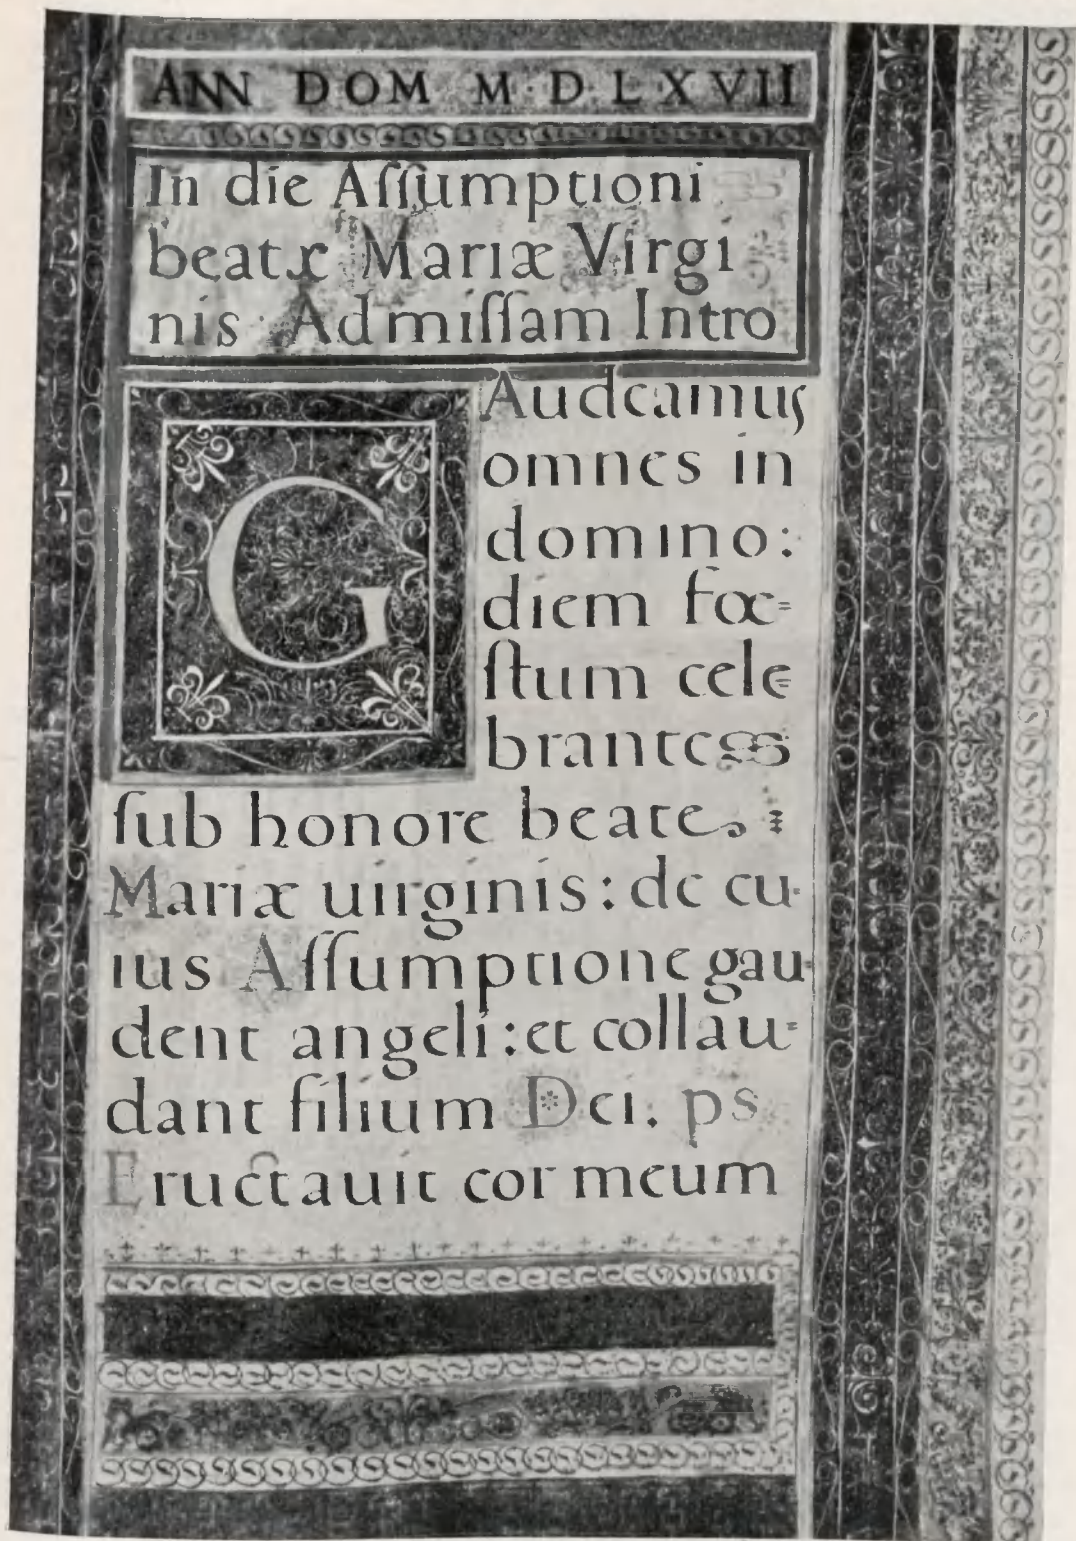 ANN DOM M·D·L X VII
In die Aſſumptioni
beatæ Mariæ Virgi
nis Admiſſam Intro
GAudeamuſ
omnes in
domino:
diem fœ=
ſtum cele
brantes
ſub honore beate.
Mariæ uirginis: de cu-
ius Aſſumptione gau-
dent angeli: et collau-
dant filium Dei. ps
Eructauit cor meum